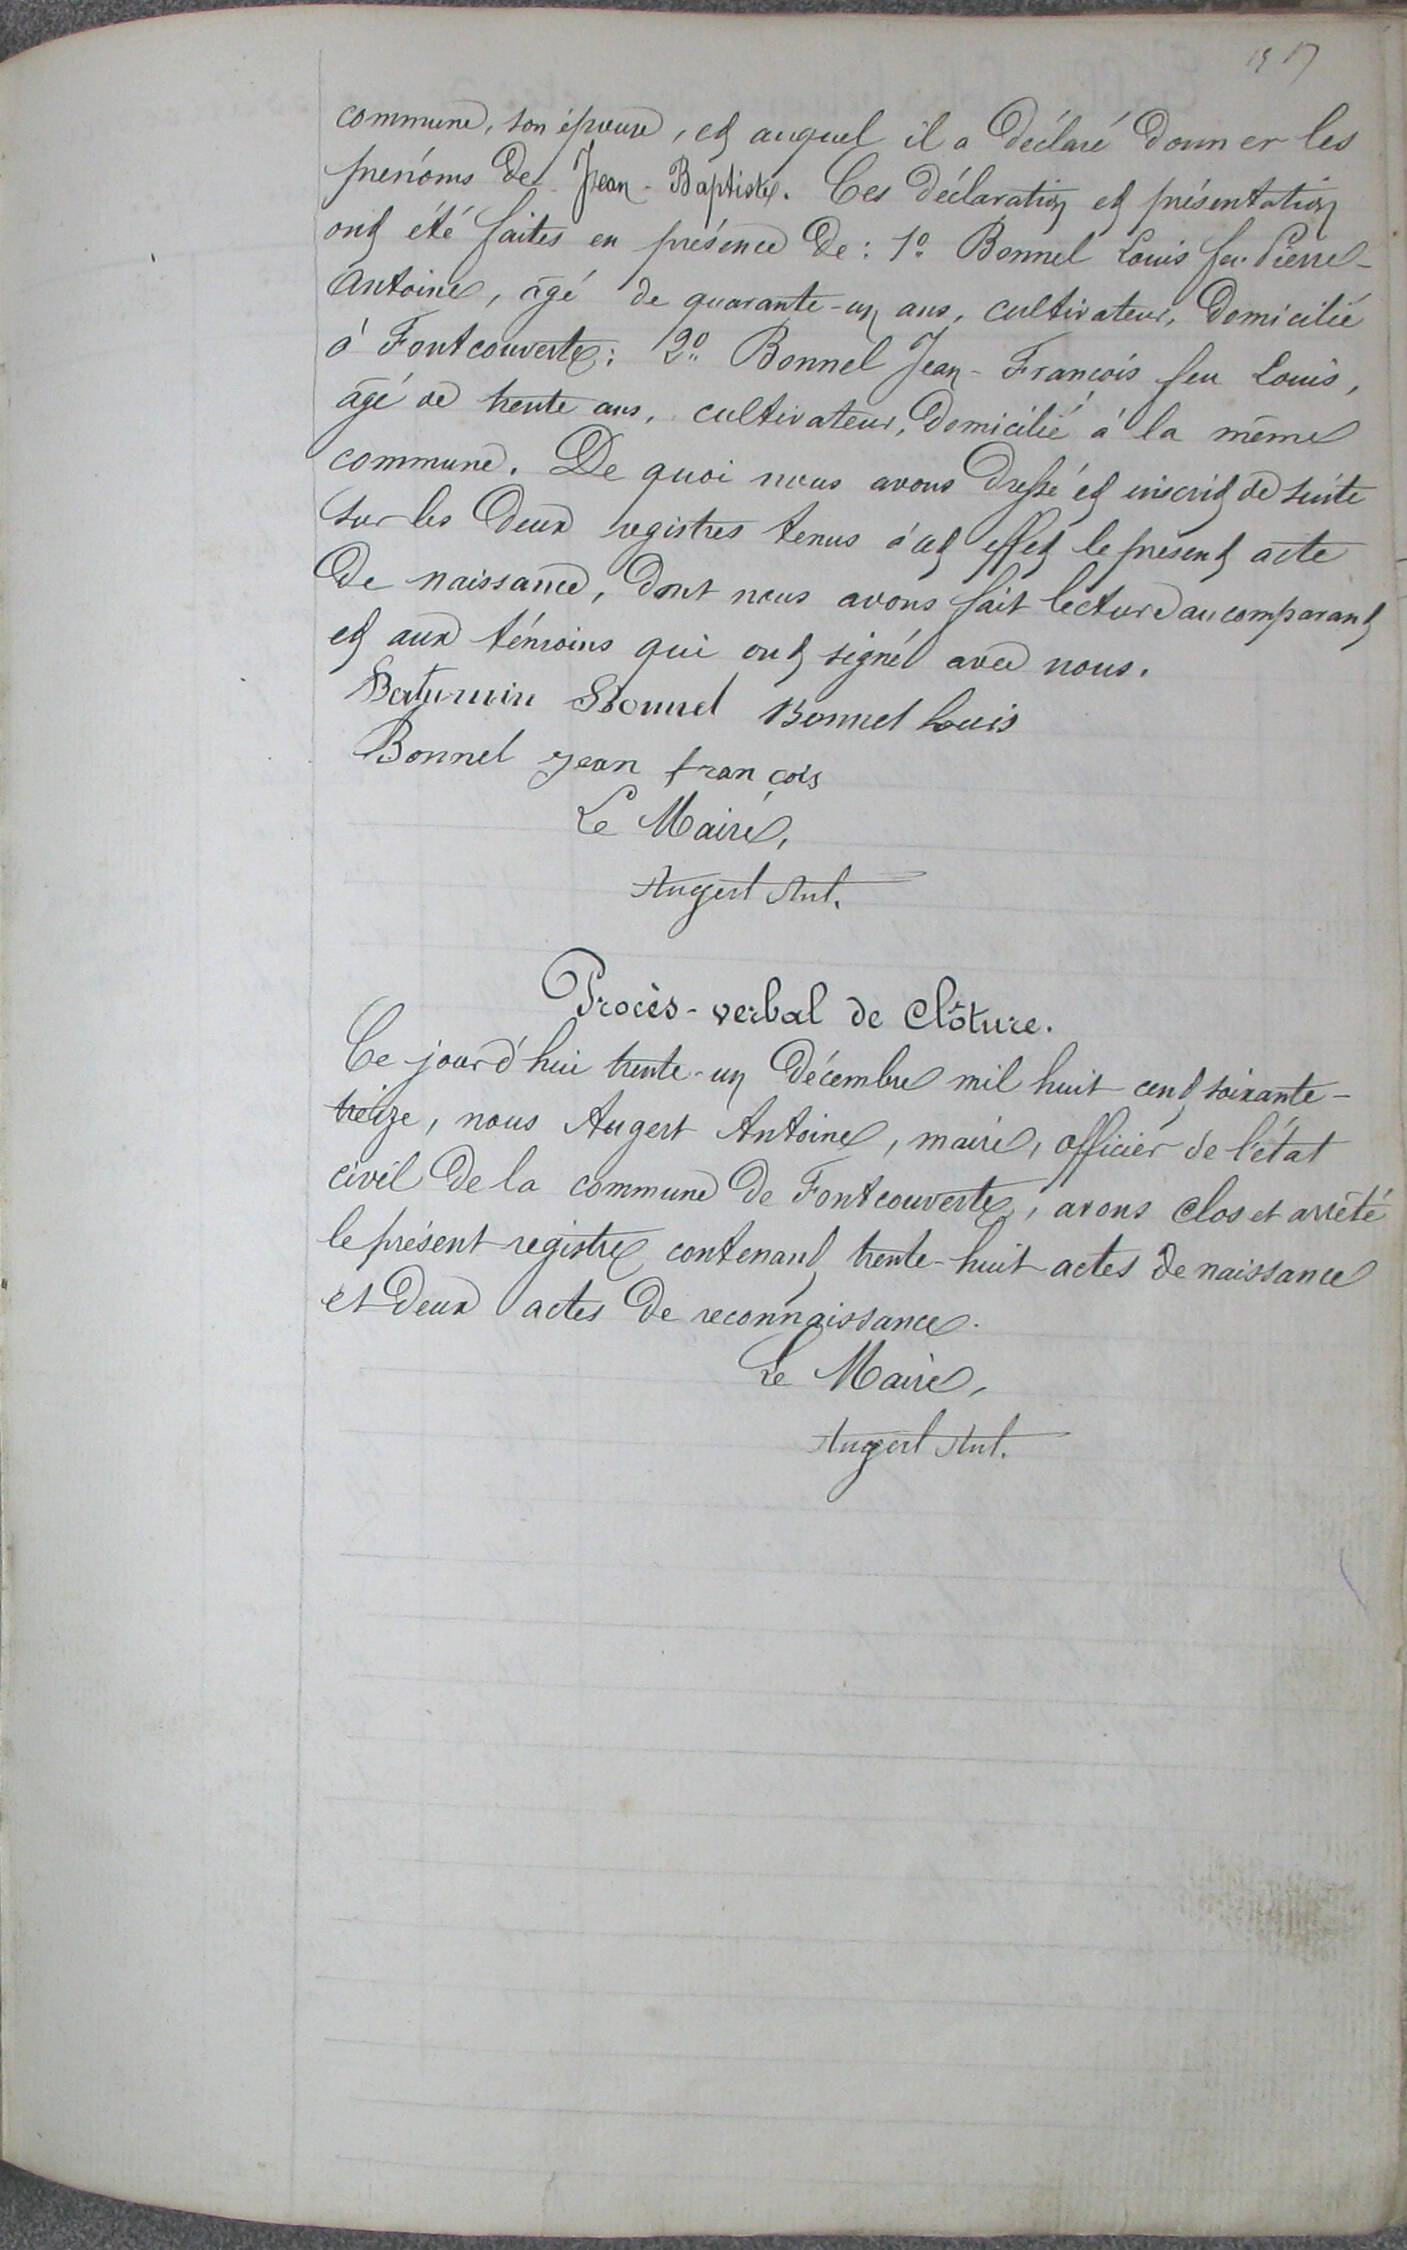 commune, son épouse, et auquel il a déclaré donner les
prénoms de Jean-Baptiste. Ces déclaration et présentation
ont été faites en présence de : 1º Bonnel Louis feu Pierre-
Antoine, âgé de quarante-un ans, cultivateur, domicilié
à Fontcouverte; 2º Bonnel Jean-François feu Louis,
âgé de trente ans, cultivateur, domicilié à la même
commune. De quoi nous avons dressé et inscrit de suite
sur les deux registres tenus à cet effet le présent acte
de naissance, dont nous avons fait lecture au comparant
et aux témoins qui ont signé avec nous.
Saturnin Bonnel Bonnel Louis
Bonnel jean françois
Le Maire,
Augert Ant.
Procès-verbal de Clôture.
Ce jourd'hui trente-un décembre mil huit cent soixante-
treize, nous Augert Antoine, maire, officier de l'état
civil de la commune de Fontcouverte, avons clos et arrêté
le présent registre contenant trente-huit actes de naissance
et deux actes de reconnaissance.
Le Maire,
Augert Ant.